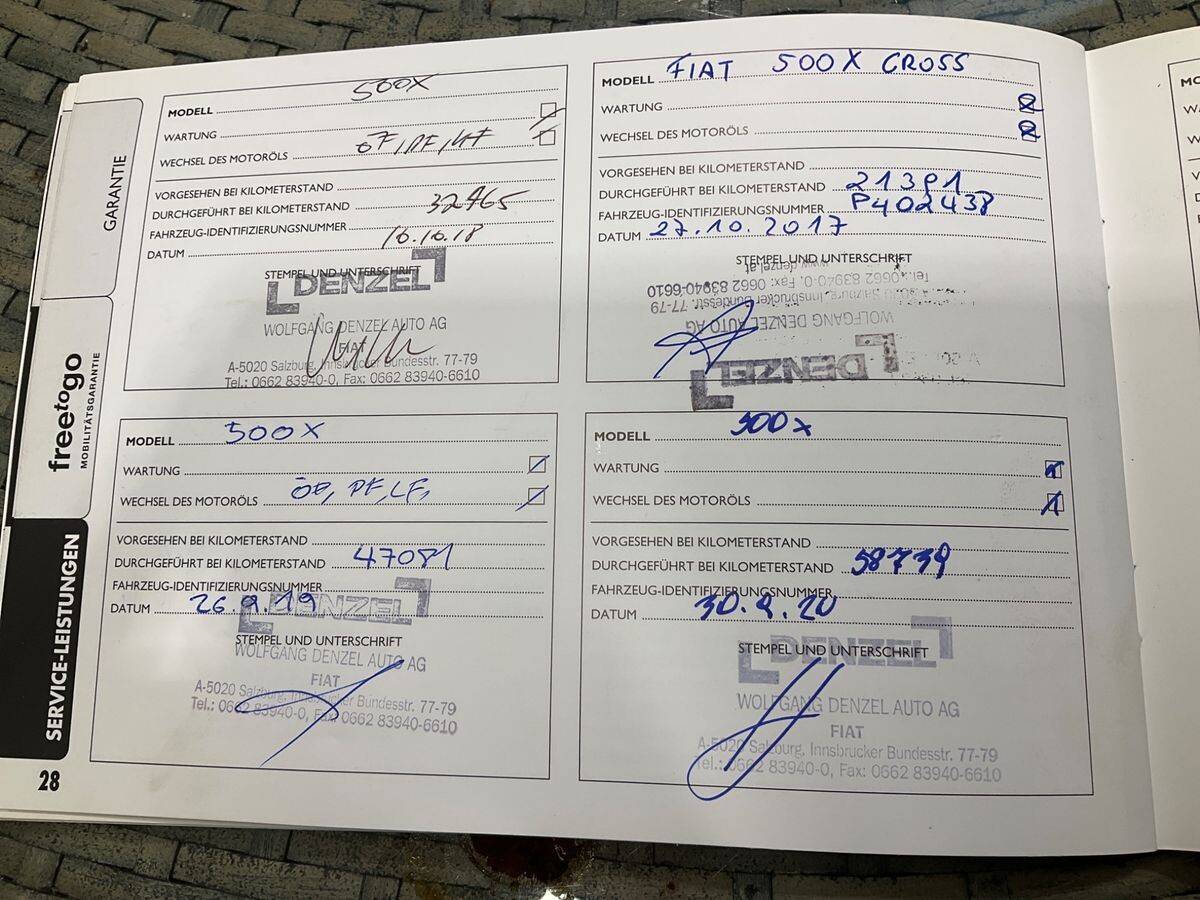 GARANTIE
freetogo
MOBILITÄTSGARANTIE
SERVICE-LEISTUNGEN
28
MODELL 500X
WARTUNG
WECHSEL DES MOTORÖLS
VORGESEHEN BEI KILOMETERSTAND
DURCHGEFÜHRT BEI KILOMETERSTAND 32465
FAHRZEUG-IDENTIFIZIERUNGSNUMMER
DATUM 16.10.18
STEMPEL UND UNTERSCHRIFT
DENZEL
WOLFGANG DENZEL AUTO AG
FIAT
A-5020 Salzburg, Innsbrucker Bundesstr. 77-79
Tel.: 0662 83940-0, Fax: 0662 83940-6610
MODELL FIAT 500X CROSS
WARTUNG
WECHSEL DES MOTORÖLS
VORGESEHEN BEI KILOMETERSTAND
DURCHGEFÜHRT BEI KILOMETERSTAND 21391
FAHRZEUG-IDENTIFIZIERUNGSNUMMER P402438
DATUM 27.10.2017
STEMPEL UND UNTERSCHRIFT
www.denzel.at
Tel.: 0662 83940-0, Fax: 0662 83940-6610
A-5020 Salzburg, Innsbrucker Bundesstr. 77-79
WOLFGANG DENZEL AUTO AG
DENZEL
MODELL 500X
WARTUNG
WECHSEL DES MOTORÖLS ÖF, PF, LF,
VORGESEHEN BEI KILOMETERSTAND
DURCHGEFÜHRT BEI KILOMETERSTAND 47081
FAHRZEUG-IDENTIFIZIERUNGSNUMMER
DATUM 26.9.19
DENZEL
STEMPEL UND UNTERSCHRIFT
WOLFGANG DENZEL AUTO AG
FIAT
A-5020 Salzburg, Innsbrucker Bundesstr. 77-79
Tel.: 0662 83940-0, Fax: 0662 83940-6610
MODELL 500X
WARTUNG
WECHSEL DES MOTORÖLS
VORGESEHEN BEI KILOMETERSTAND
DURCHGEFÜHRT BEI KILOMETERSTAND 58739
FAHRZEUG-IDENTIFIZIERUNGSNUMMER
DATUM 30.9.20
DENZEL
STEMPEL UND UNTERSCHRIFT
WOLFGANG DENZEL AUTO AG
FIAT
A-5020 Salzburg, Innsbrucker Bundesstr. 77-79
Tel.: 0662 83940-0, Fax: 0662 83940-6610